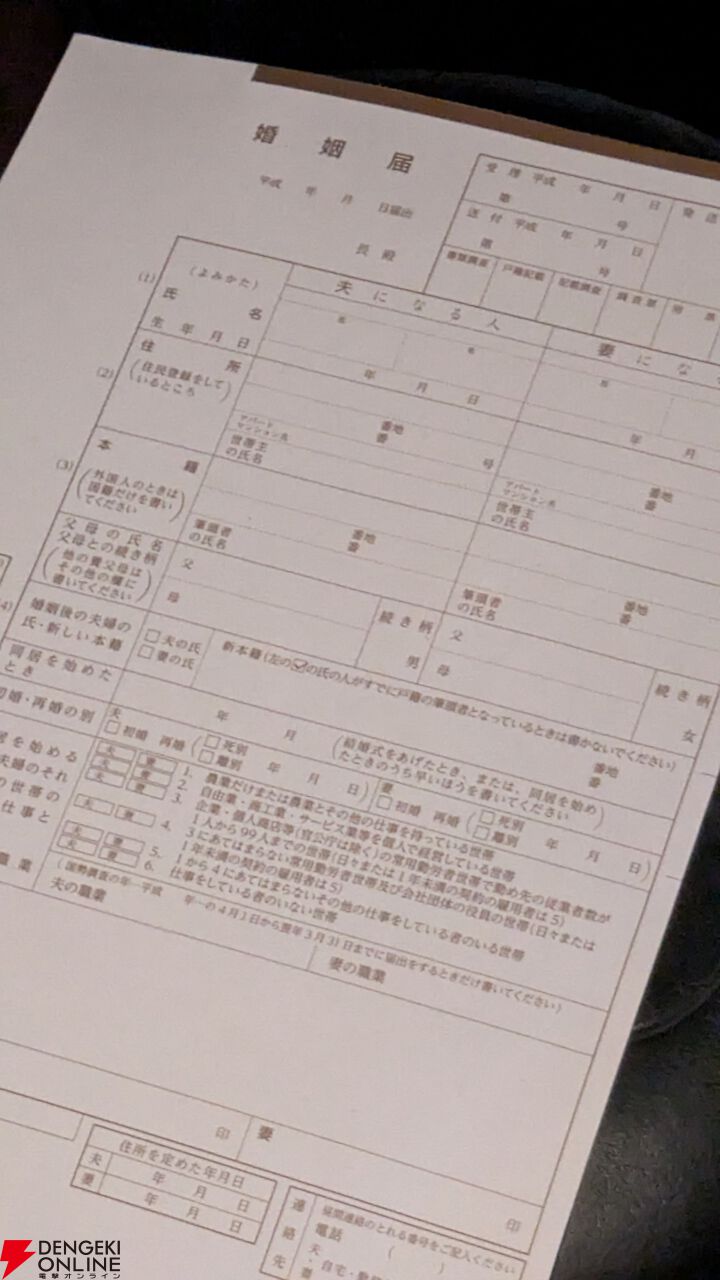 婚姻届
平成 年 月 日届出
長 殿
受理 平成 年 月 日
第 号
発送
送付 平成 年 月 日
第 号
書類調査 戸籍記載 記載調査 調査票 附票
(1)
(よみかた)
夫になる人
妻になる
氏名
氏
氏
生年月日
年 月 日
年 月
(2)
住所
(住民登録をしているところ)
番地
番 号
アパート
マンション名
世帯主
の氏名
番地
番
アパート
マンション名
世帯主
の氏名
(3)
本籍
(外国人のときは
国籍だけを書い
てください)
番地
番
筆頭者
の氏名
番地
番
筆頭者
の氏名
父母の氏名
父母との続き柄
(他の養父母は
その他の欄に
書いてください)
父
母
続き柄
男
父
母
続き柄
女
4)
婚姻後の夫婦の
氏・新しい本籍
□夫の氏
□妻の氏
新本籍(左の☑の氏の人がすでに戸籍の筆頭者となっているときは書かないでください)
番地
番
同居を始めた
とき
年 月
(結婚式をあげたとき、または、同居を始め
たときのうち早いほうを書いてください)
初婚・再婚の別
夫
□初婚 再婚(□死別
□離別 年 月 日)
妻
□初婚 再婚(□死別
□離別 年 月 日)
居を始める
夫婦のそれ
の世帯の
仕事と
夫 妻 1. 農業だけまたは農業とその他の仕事を持っている世帯
夫 妻 2. 自由業・商工業・サービス業等を個人で経営している世帯
夫 妻 3. 企業・個人商店等(官公庁は除く)の常用勤労者世帯で勤め先の従業者数が
1人から99人までの世帯(日々または1年未満の契約の雇用者は5)
夫 妻 4. 3にあてはまらない常用勤労者世帯及び会社団体の役員の世帯(日々または
1年未満の契約の雇用者は5)
夫 妻 5. 1から4にあてはまらないその他の仕事をしている者のいる世帯
夫 妻 6. 仕事をしている者のいない世帯
職業
(国勢調査の年―平成 年―の4月1日から翌年3月31日までに届出をするときだけ書いてください)
夫の職業
妻の職業
印
妻
印
住所を定めた年月日
夫 年 月 日
妻 年 月 日
連絡先
昼間連絡のとれる番号をご記入ください
電話 ( )
夫
・自宅・勤
妻
DENGEKI
ONLINE
電撃オンライン